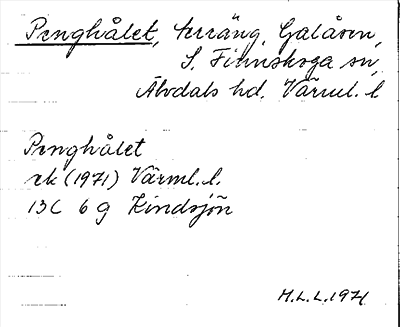 Penghålet, terräng, Galåsen,
S. Finnskoga sn,
Älvdals hd. Värml. l
Penghålet
ek (1971) Värml. l.
13C 6g Kindsjön
M.L.L. 1971